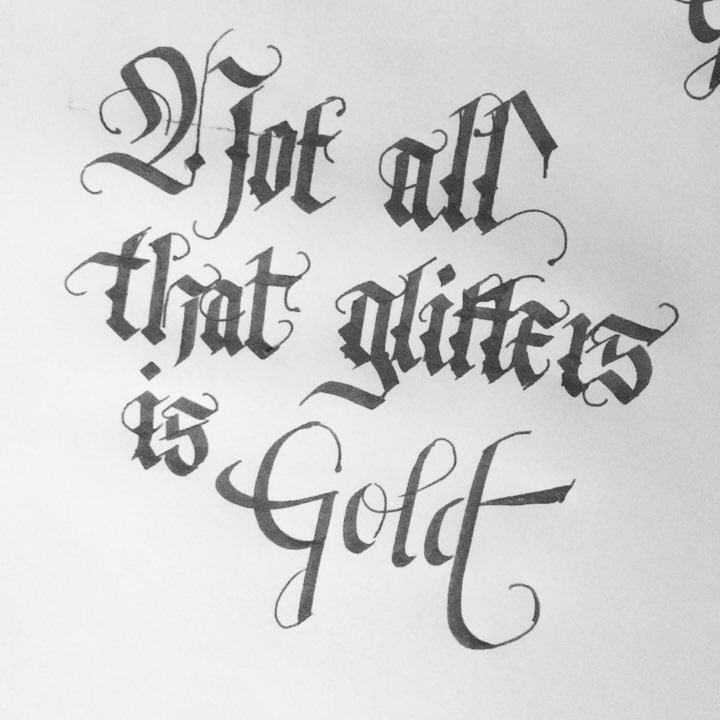 Not all
that glitters
is Gold